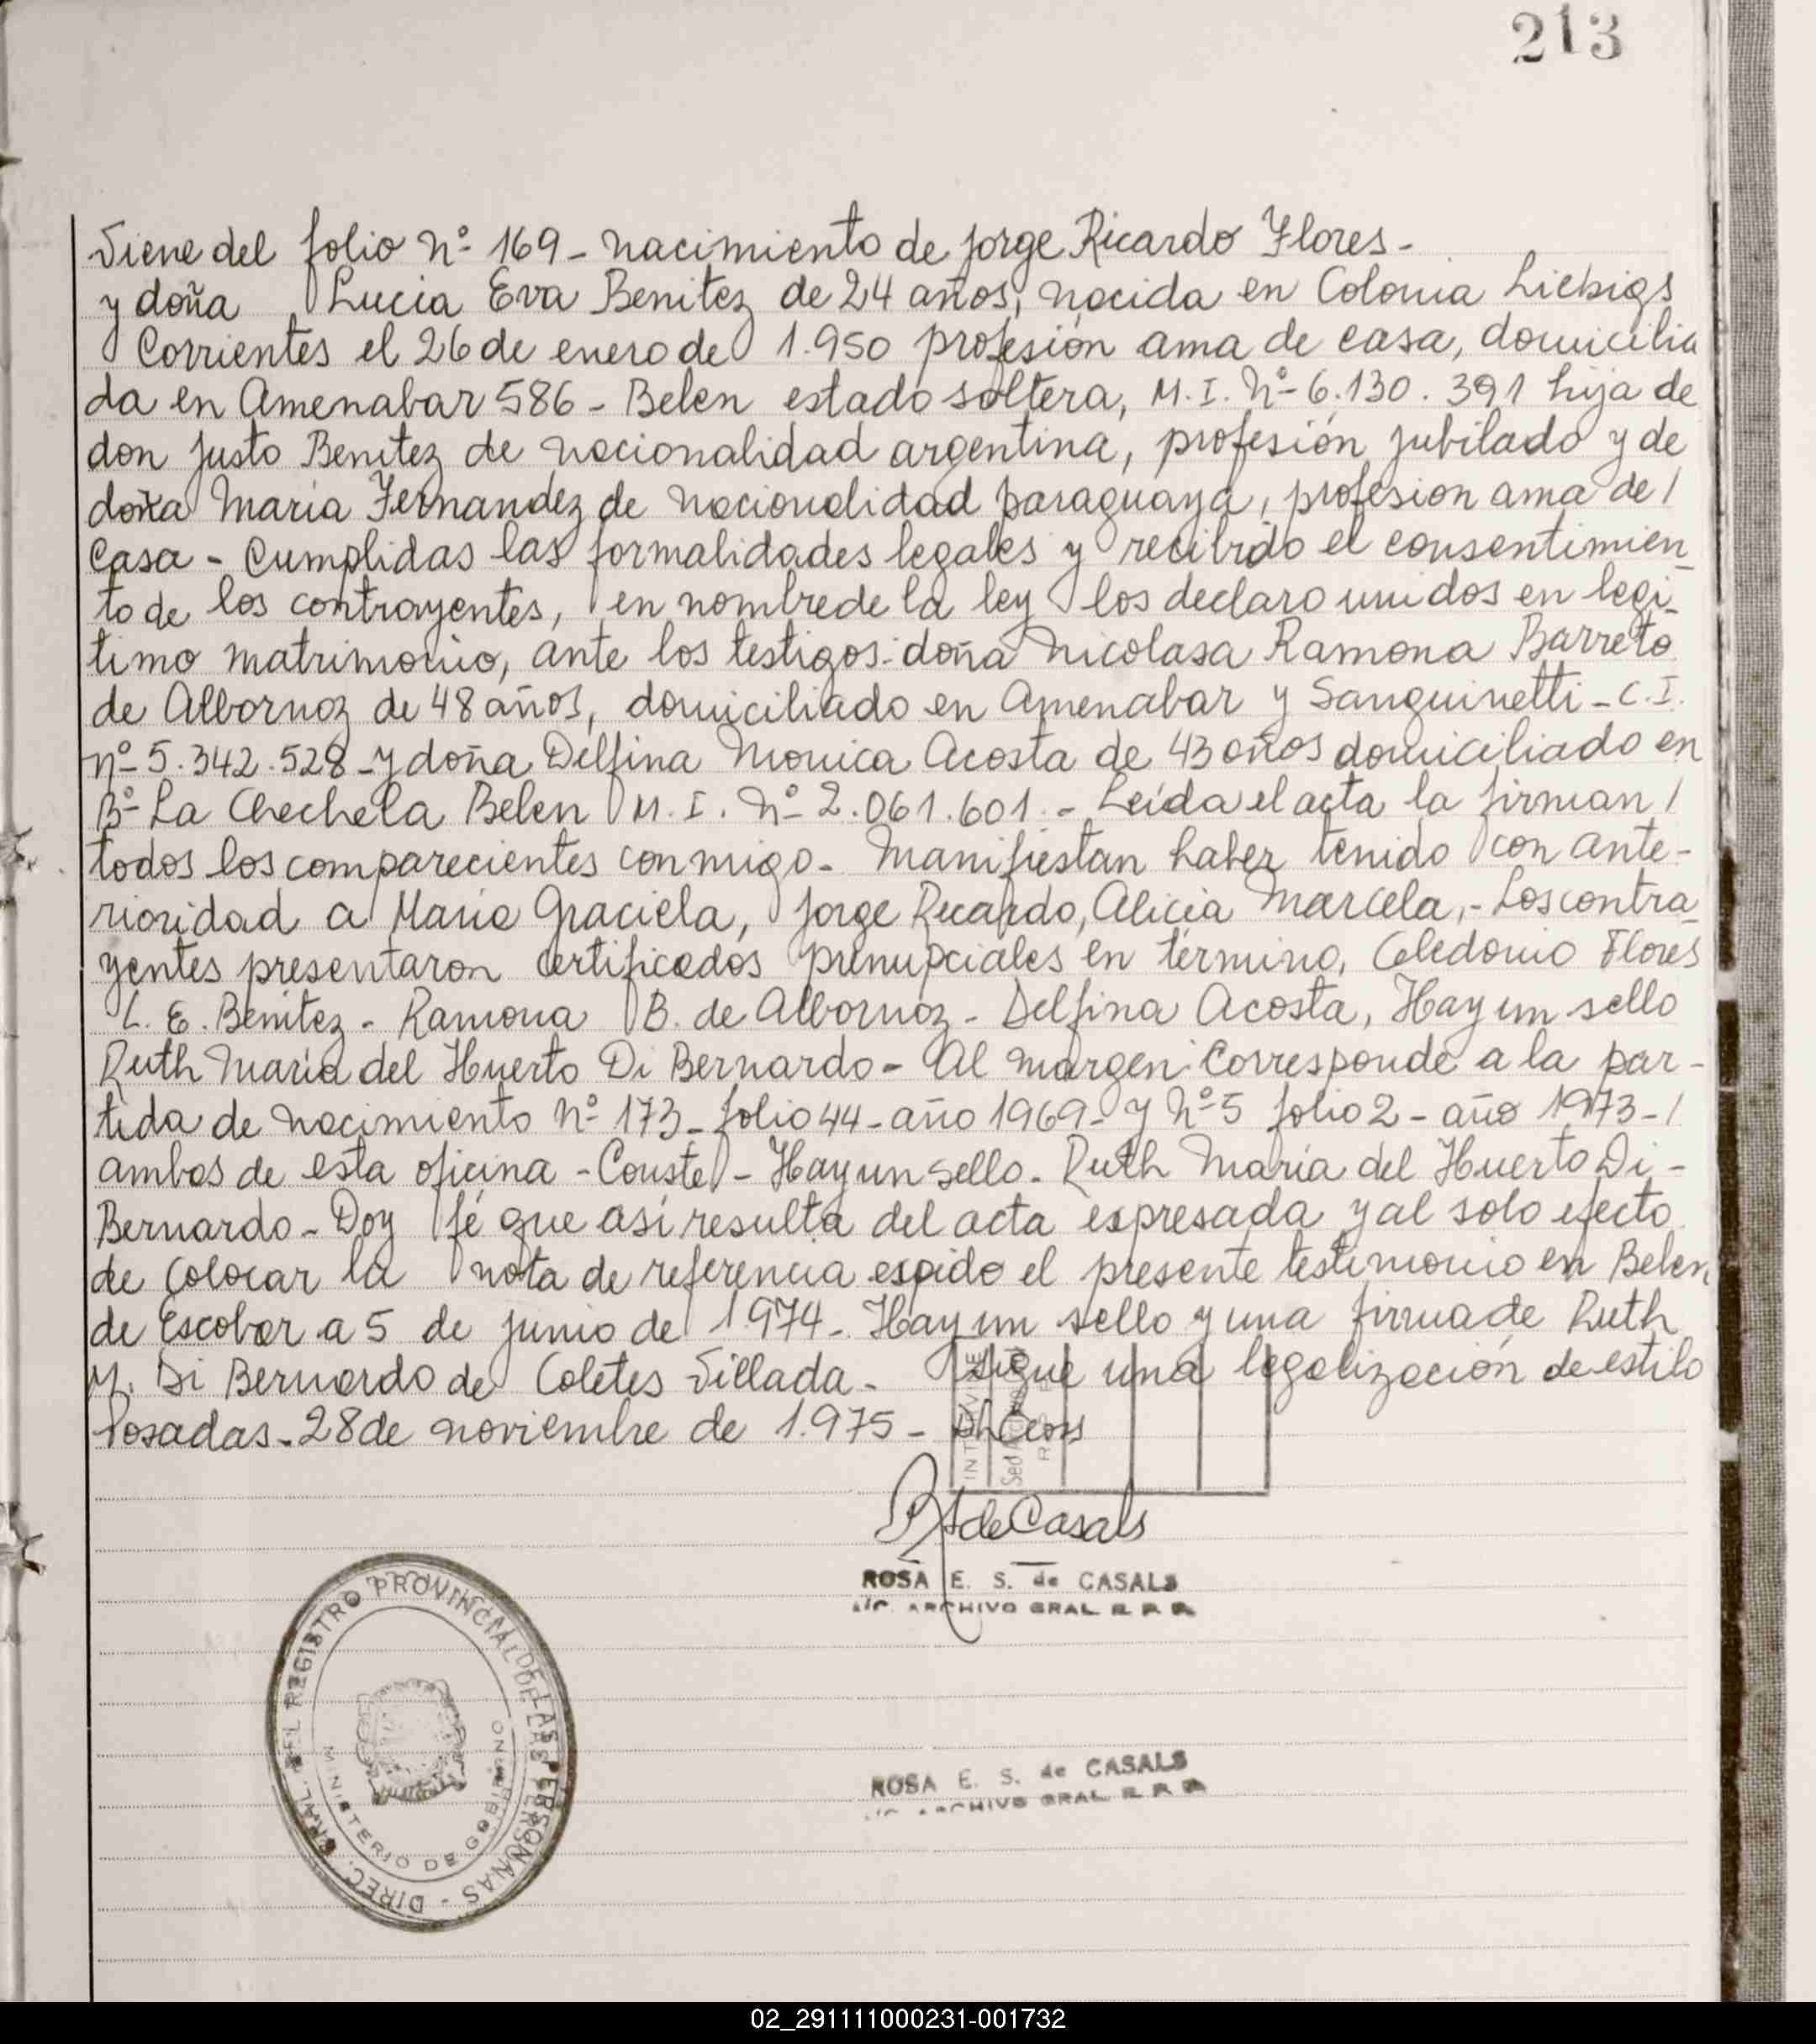 213
Viene del folio Nº 169 - nacimiento de Jorge Ricardo Flores -
y doña Lucia Eva Benitez de 24 años, nacida en Colonia Liebigs
Corrientes el 26 de enero de 1.950 profesión ama de casa, domicilia
da en Amenabar 586 - Belen estado soltera, M.I. Nº 6.130.391 hija de
don Justo Benitez de nacionalidad argentina, profesión jubilado y de
doña Maria Fernandez de nacionalidad paraguaya, profesion ama de /
Casa - Cumplidas las formalidades legales y recibido el consentimien_
to de los contrayentes, en nombre de la ley los declaro unidos en legi_
timo matrimonio, ante los testigos: doña Nicolasa Ramona Barreto
de Albornoz de 48 años, domiciliado en Amenabar y Sanguinetti - C.I.
Nº 5.342.528 - y doña Delfina Monica Acosta de 43 años domiciliado en
Bº La Chechela Belen M.I. Nº 2.061.601. - Leída el acta la firman /
todos los comparecientes conmigo - Manifiestan haber tenido con ante-
rioridad a Maria Graciela, Jorge Ricardo, Alicia Marcela, - Los contra_
yentes presentaron certificados prenupciales en término, Celedonio Flores
L. E. Benitez - Ramona B. de Albornoz - Delfina Acosta, Hay un sello
Ruth María del Huerto Di Bernardo - Al margen: Corresponde a la par-
tida de nacimiento Nº 173 - folio 44 - año 1969 - y Nº 5 folio 2 - año 1973 - /
ambos de esta oficina - Conste - Hay un sello - Ruth María del Huerto Di -
Bernardo - Doy fé que así resulta del acta expresada y al solo efecto
de colocar la nota de referencia expido el presente testimonio en Belen
de Escobar a 5 de junio de 1.974 - Hay un sello y una firma de Ruth
M. Di Bernardo de Coletes Villada - Sigue una legalización de estilo
Posadas - 28 de noviembre de 1.975 -
de Casals
ROSA E. S. de CASALS
ARCHIVO GRAL R. P. P.
DIREC. GRAL. DEL REGISTRO PROVINCIAL DE LAS PERSONAS -
MINISTERIO DE GOBIERNO
ROSA E. S. de CASALS
ARCHIVO GRAL R. P. P.
02_291111000231-001732